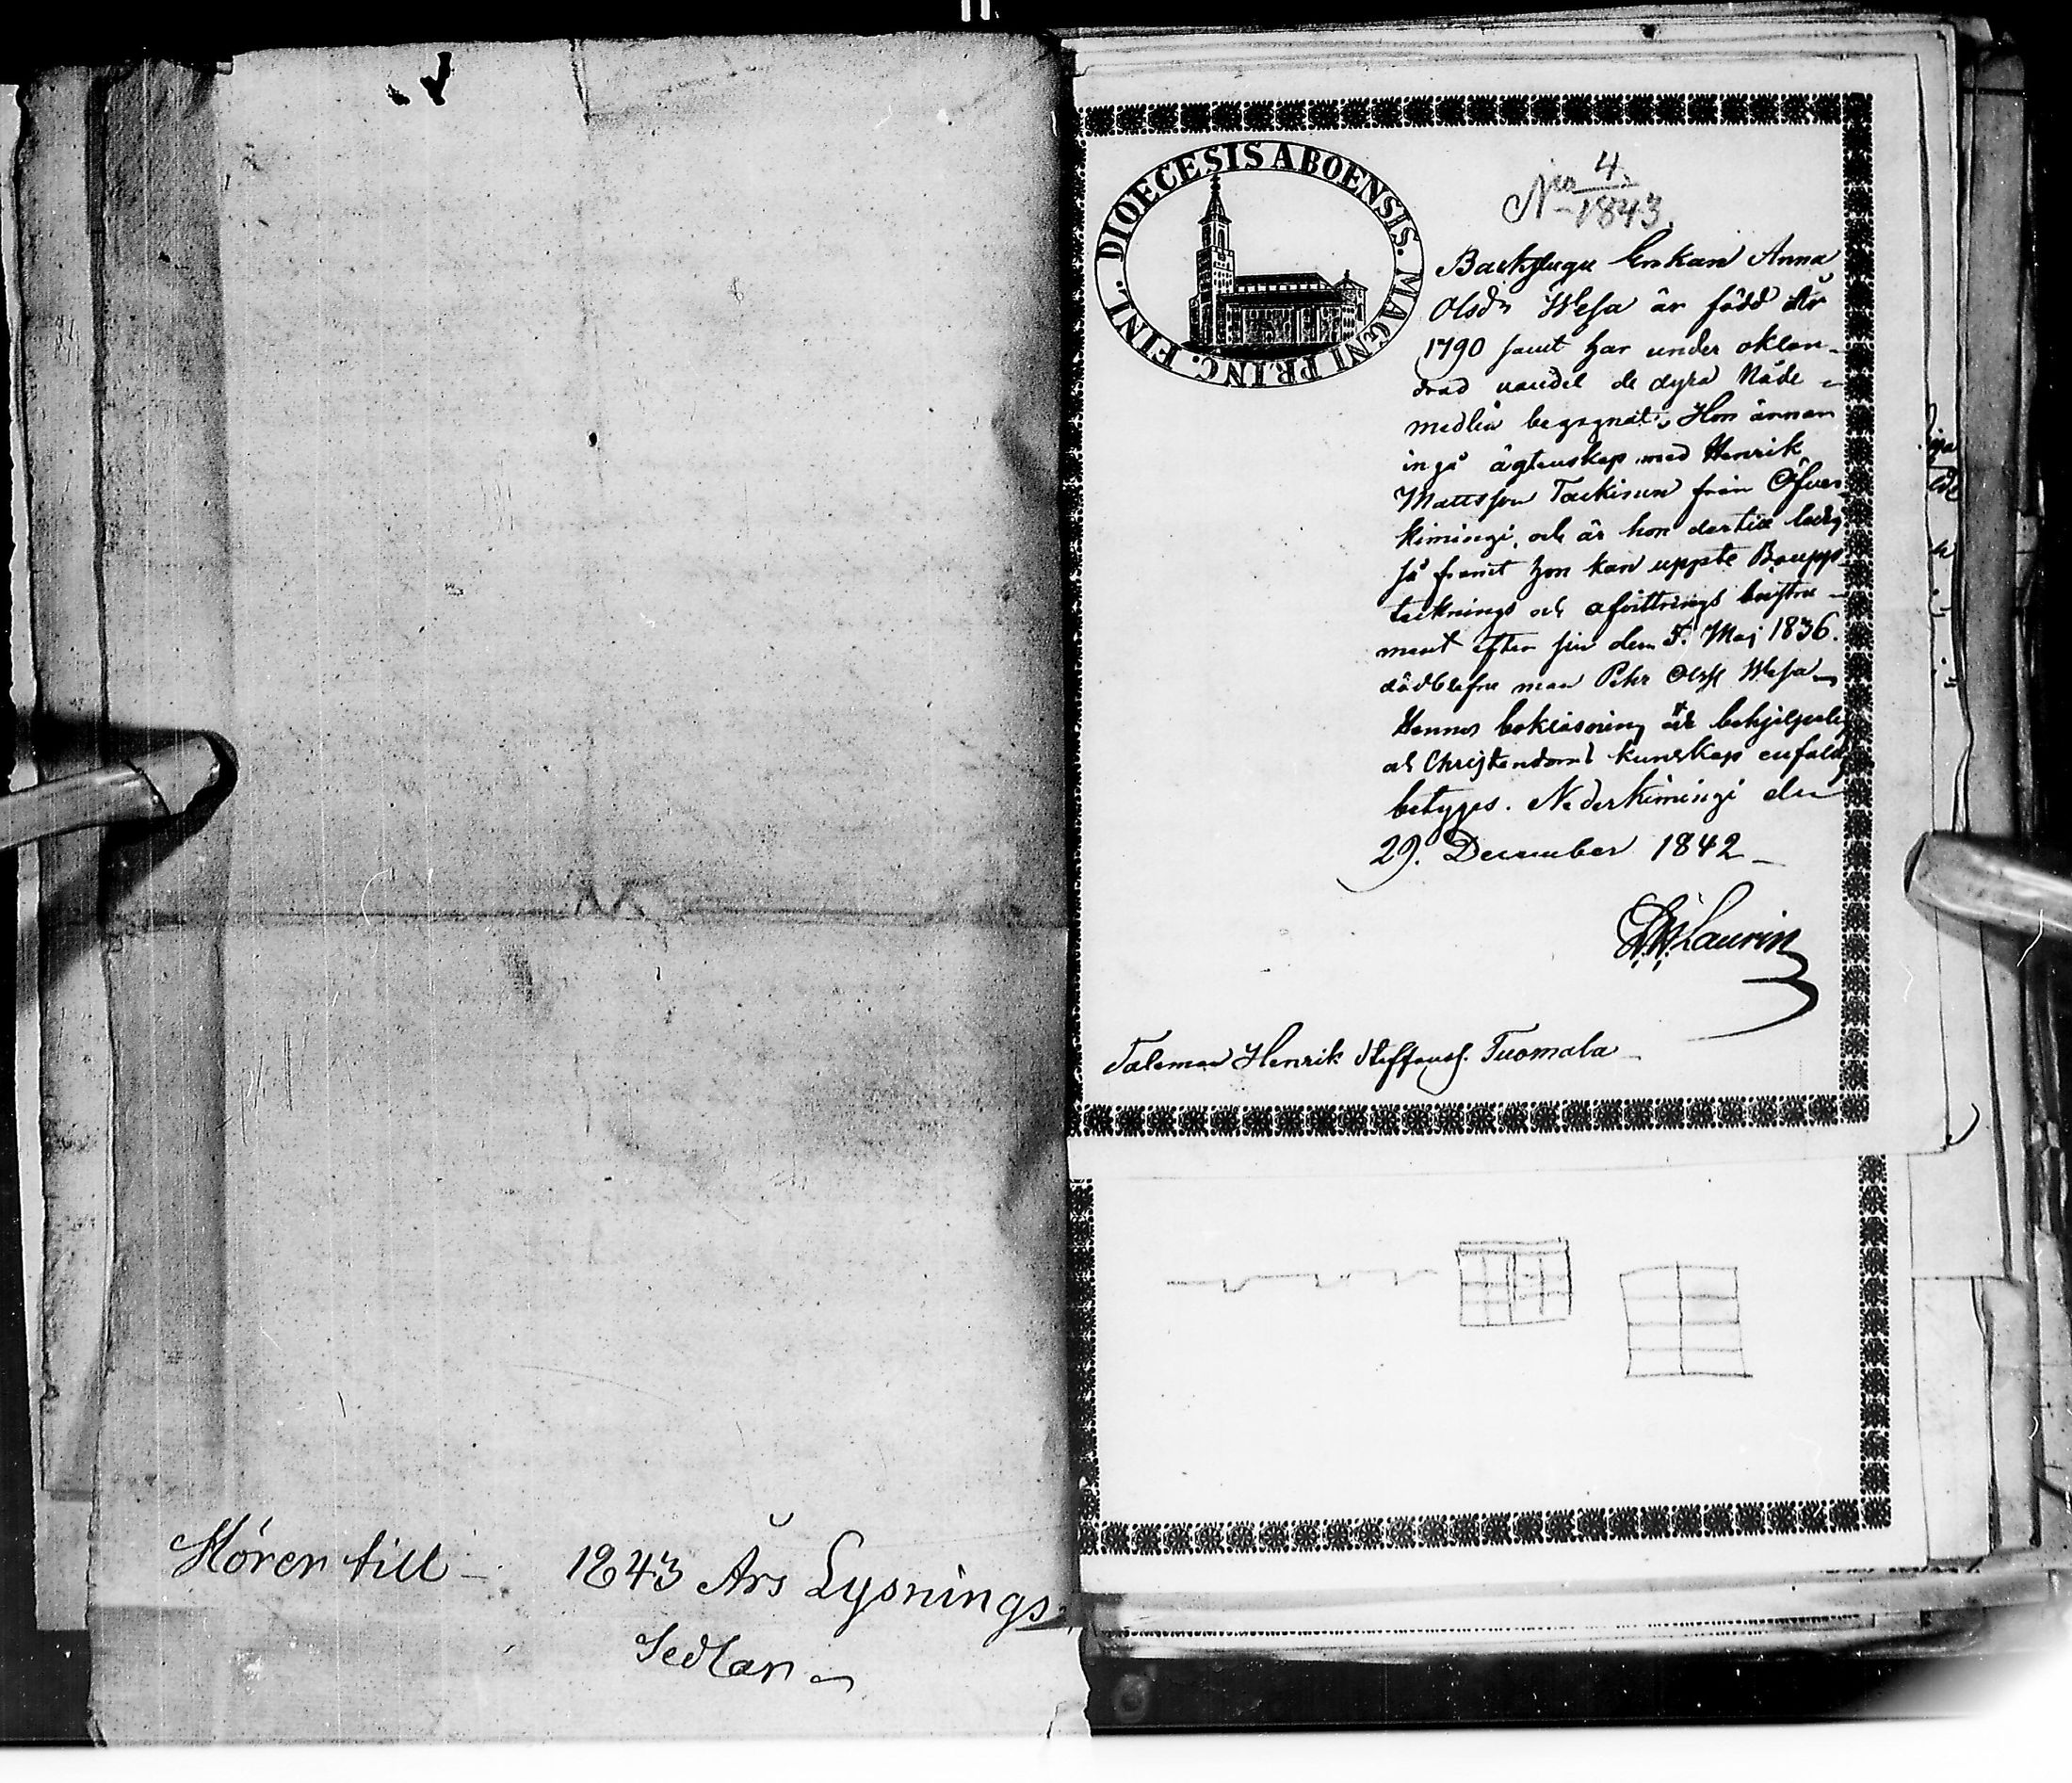 Hörer till – 1843 Års Lysnings
Sedlar
DIOECESIS ABOENSIS. MAGNI PRINC. FINL.
Nro 4.
1843.
Backstugu Enkan Anna
Olsdr Wesa är född År
1790 samt har under oklan-
drad vandel de dyra Nåde-
medlen begagnat. Hon ärnar
ingå ägtenskap med Henrik
Mattsson Taskinen från Öfver
Kimingi, och är hon dertill ledig
så framt hon kan uppte Boupp-
tecknings och afvittrings instru-
ment efter sin den 5. Maj 1836.
dödblefne man Pehr Olss Wesa
Hennes bokläsning är behjelpelig
och Christendoms kunskap enfaldig
betyges. Nederkimingi den
29. December 1842
Laurin
Taleman Henrik Steffanss. Tuomala